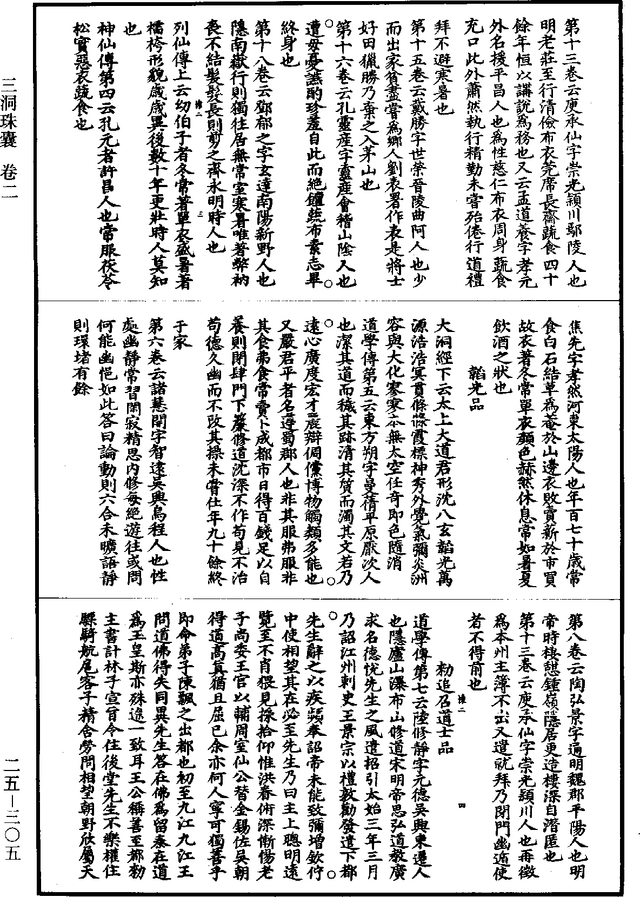 三洞珠囊 卷二
二五—三〇五
第十三卷云庾承仙字崇光潁川鄢陵人也
明老莊至行清儉布衣莞席長齋蔬食四十
餘年恒以講說為務也又云孟道養字孝元
外名援平昌人也為性慈仁布衣周身蔬食
充口此外蕭然執行精勤未嘗殆倦行道禮
拜不避寒暑也
第十五卷云戴勝字世榮晉陵曲阿人也少
而出家貧盡嘗為鄉人劉表署作衣是將士
好田獵勝乃棄之入茅山也
第十六卷云孔靈產字靈產會稽山陰人也
遭母憂讌酌珍羞自此而絕饘蔬布素志畢
終身也
第十八卷云鄧郁之字玄達南陽新野人也
隱南嶽行則獨往居無常室寒暑唯著弊衲
衣不結髮髮長則剪之齊永明時人也
列仙傳上云幼伯子者冬常著單衣盛暑著
襦袴形貌歲歲異後數十年更壯時人莫知
也
神仙傳第四云孔元者許昌人也常服茯苓
松實惡衣蔬食也
焦先字孝然河東太陽人也年百七十歲常
食白石結草為菴於山邊衣敗賣薪於市買
故衣著冬常單衣顏色赫然休息常如暑夏
飲酒之狀也
韜光品
大洞經下云太上大道君形沈八玄韜光萬
源浩浩冥貫條條霞標神秀外覺氣彌炎洲
容與大化寥寥令無太空任奇即色隨消
道學傳第五云東方朔字曼倩平原厭次人
也潔其道而穢其跡清其質而濁其文若乃
遠心廣度宏才麗辯倜儻博物觸類多能也
又嚴君平者名遵蜀郡人也非其服弗服非
其食弗食常賣卜成都市日得百錢足以自
養則閉肆門下簾修道沈深不作苟見不治
苟德久幽而不改其操未嘗仕年九十餘終
于家
第六卷云諸慧開字智遠吳興烏程人也性
處幽靜常習閑寂精思內修每絕遊往或問
何能幽悒如此答曰論動則六合未曠語靜
則環堵有餘
第八卷云陶弘景字通明魏郡平陽人也明
帝時棲憩鍾嶺隱居更造樓深自潛匿也
第十三卷云庾承仙字崇光潁川人也再徵
為本州主簿不出又遣就拜乃閉門幽遁使
者不得前也
勑追召道士品
道學傳第七云陸修靜字元德吳興東遷人
也隱廬山瀑布山修道宋明帝思弘道教廣
求名德悅先生之風遣招引太始三年三月
乃詔江州刺史王景宗以禮敦勸發遣下都
先生辭之以疾頻奉詔帝未能致彌增欽佇
中使相望其在必至先生乃曰主上聰明遠
覽至不肖猥見採拾仰惟洪眷俯深慚惕老
子尚委王官以輔周室仙公替金錫佐吳朝
得道高真猶且屈己余亦何人寧可獨善乎
即命弟子陳飄之出都也初至九江九江王
問道佛得失同異先生答在佛為留秦在道
為玉皇斯亦殊途一致耳王公稱善至都勑
主書計林子宣旨令住後堂先生不樂權住
驃騎航扈客子精舍勞問相望朝野欣屬天